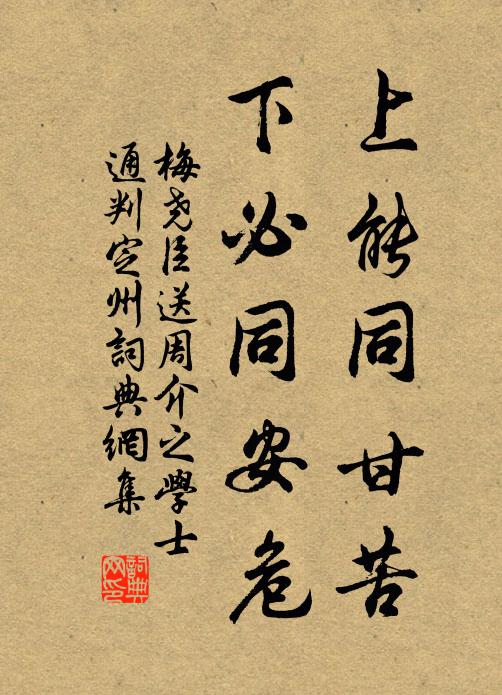 上能同甘苦
下必同安危
梅尧臣送周介之學士
通判定州詞典網集
詞典
网印